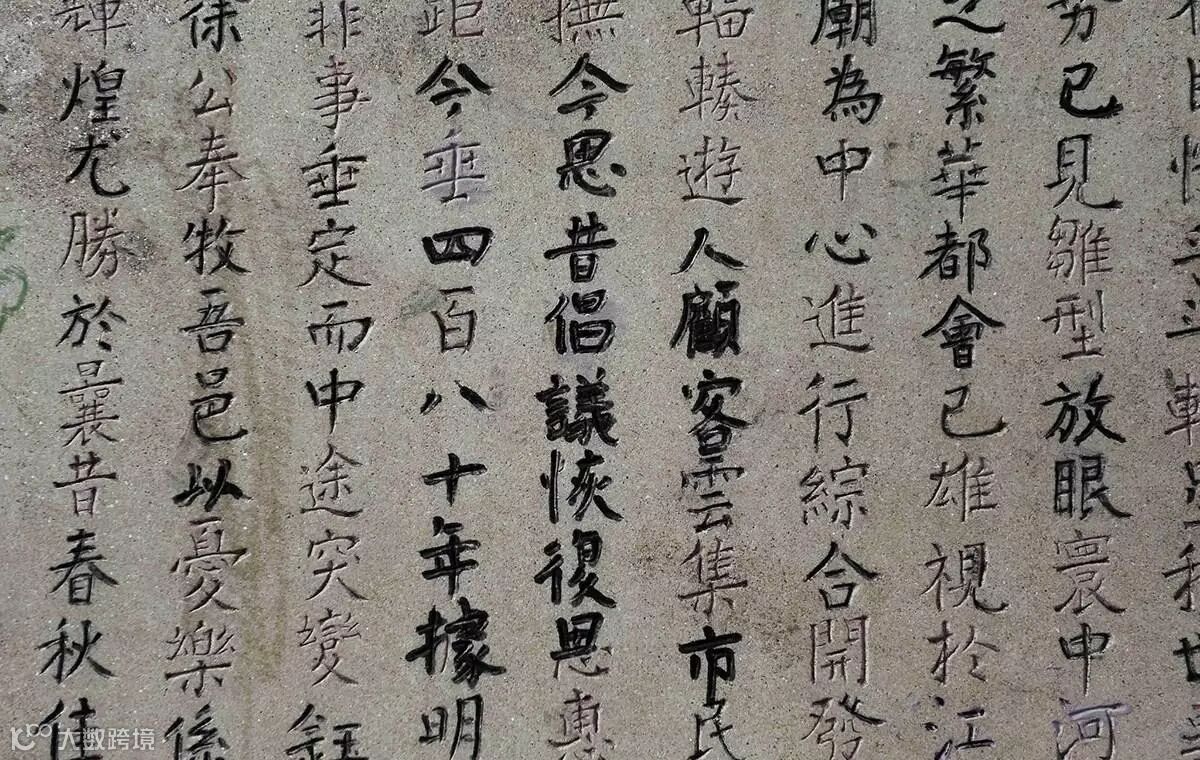 已見雛型放眼寰中河
之繁華都會已雄視於江
廟為中心進行綜合開發
輻輳遊人顧客雲集市民
撫今思昔倡議恢復恩惠
距今垂四百八十年據明
事垂定而中途突變鈺
徐公奉牧吾邑以憂樂係
輝煌尤勝於曩昔春秋佳
大数跨境